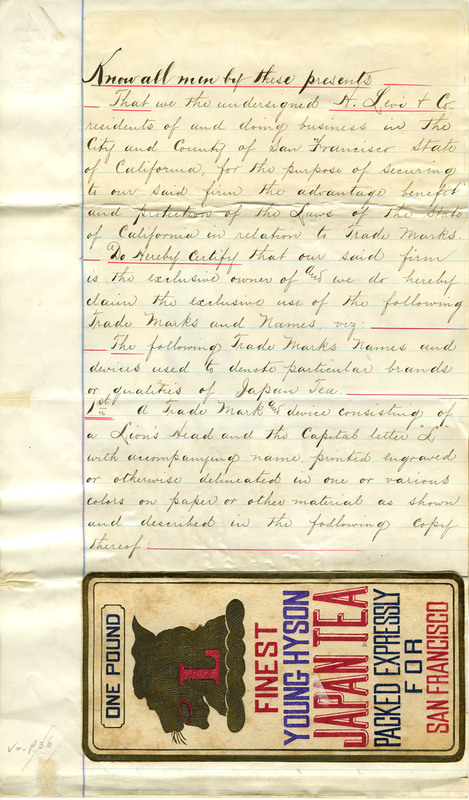 Know all men by these presents
That we the undersigned H. Levi & Co.
residents of and doing business in the
City and County of San Francisco State
of California, for the purpose of securing
to our said firm the advantage benefit
and protection of the Laws of the State
of California in relation to Trade Marks.
Do Hereby Certify that our said firm
is the exclusive owner of and we do hereby
claim the exclusive use of the following
Trade Marks and Names, viz:
The following Trade Marks Names and
devices used to denote particular brands
or qualities of Japan Tea.
1st A Trade Mark and device consisting of
a Lion's Head and the Capital letter "L"
with accompanying name, printed engraved
or otherwise delineated in one or various
colors on paper or other material as shown
and described in the following copy
thereof
ONE POUND
L
FINEST
YOUNG HYSON
JAPAN TEA
PACKED EXPRESSLY
FOR
SAN FRANCISCO